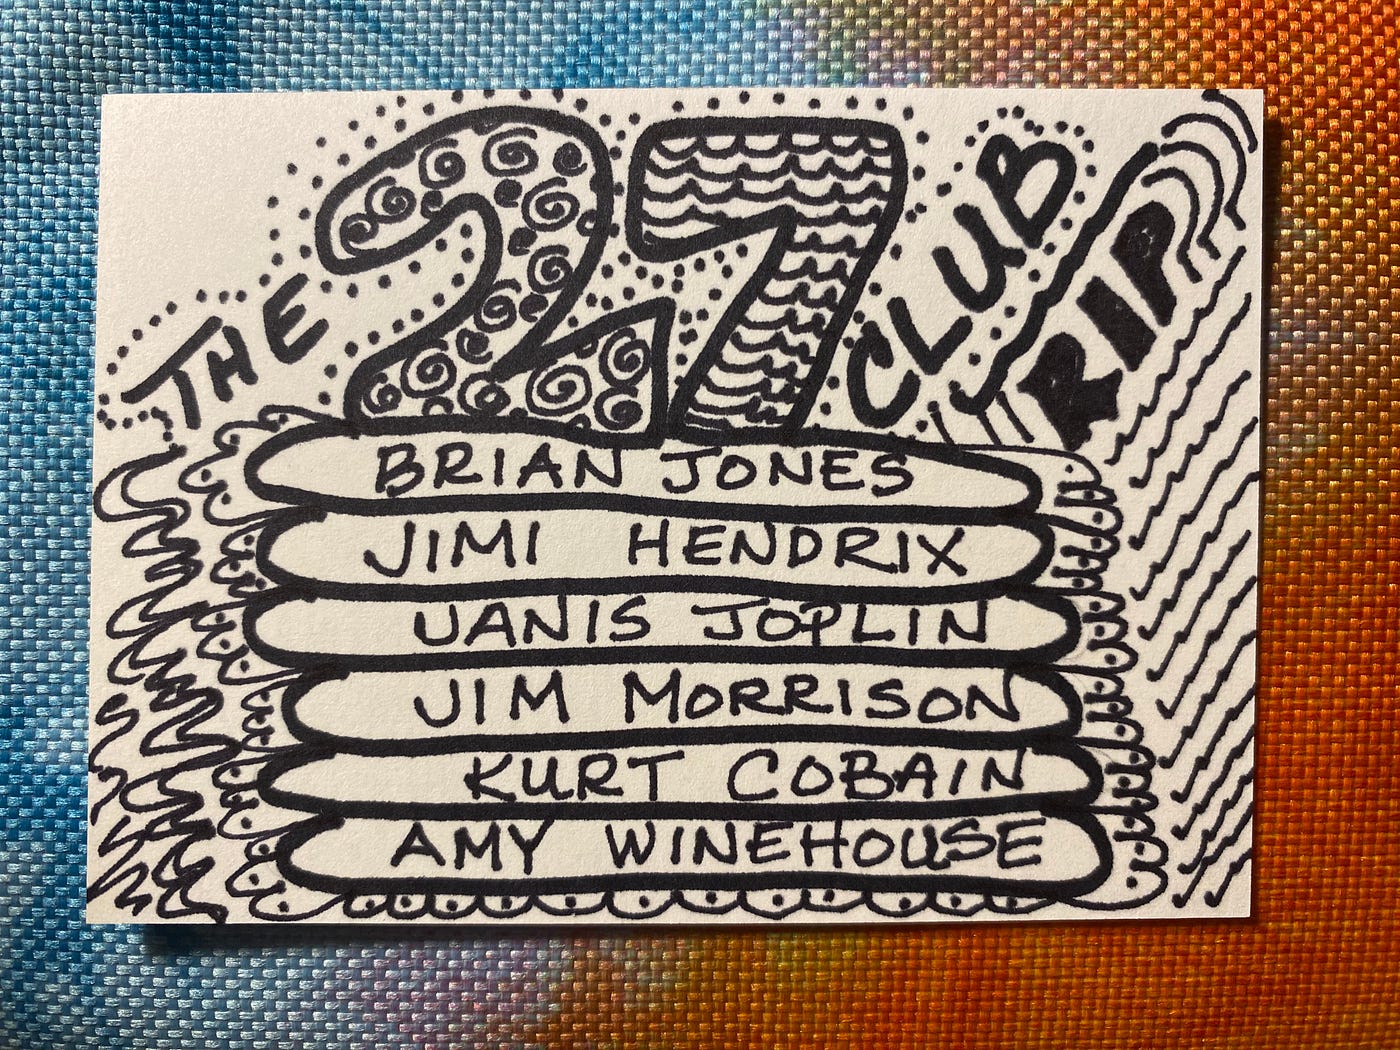 THE 27 CLUB
RIP
BRIAN JONES
JIMI HENDRIX
JANIS JOPLIN
JIM MORRISON
KURT COBAIN
AMY WINEHOUSE